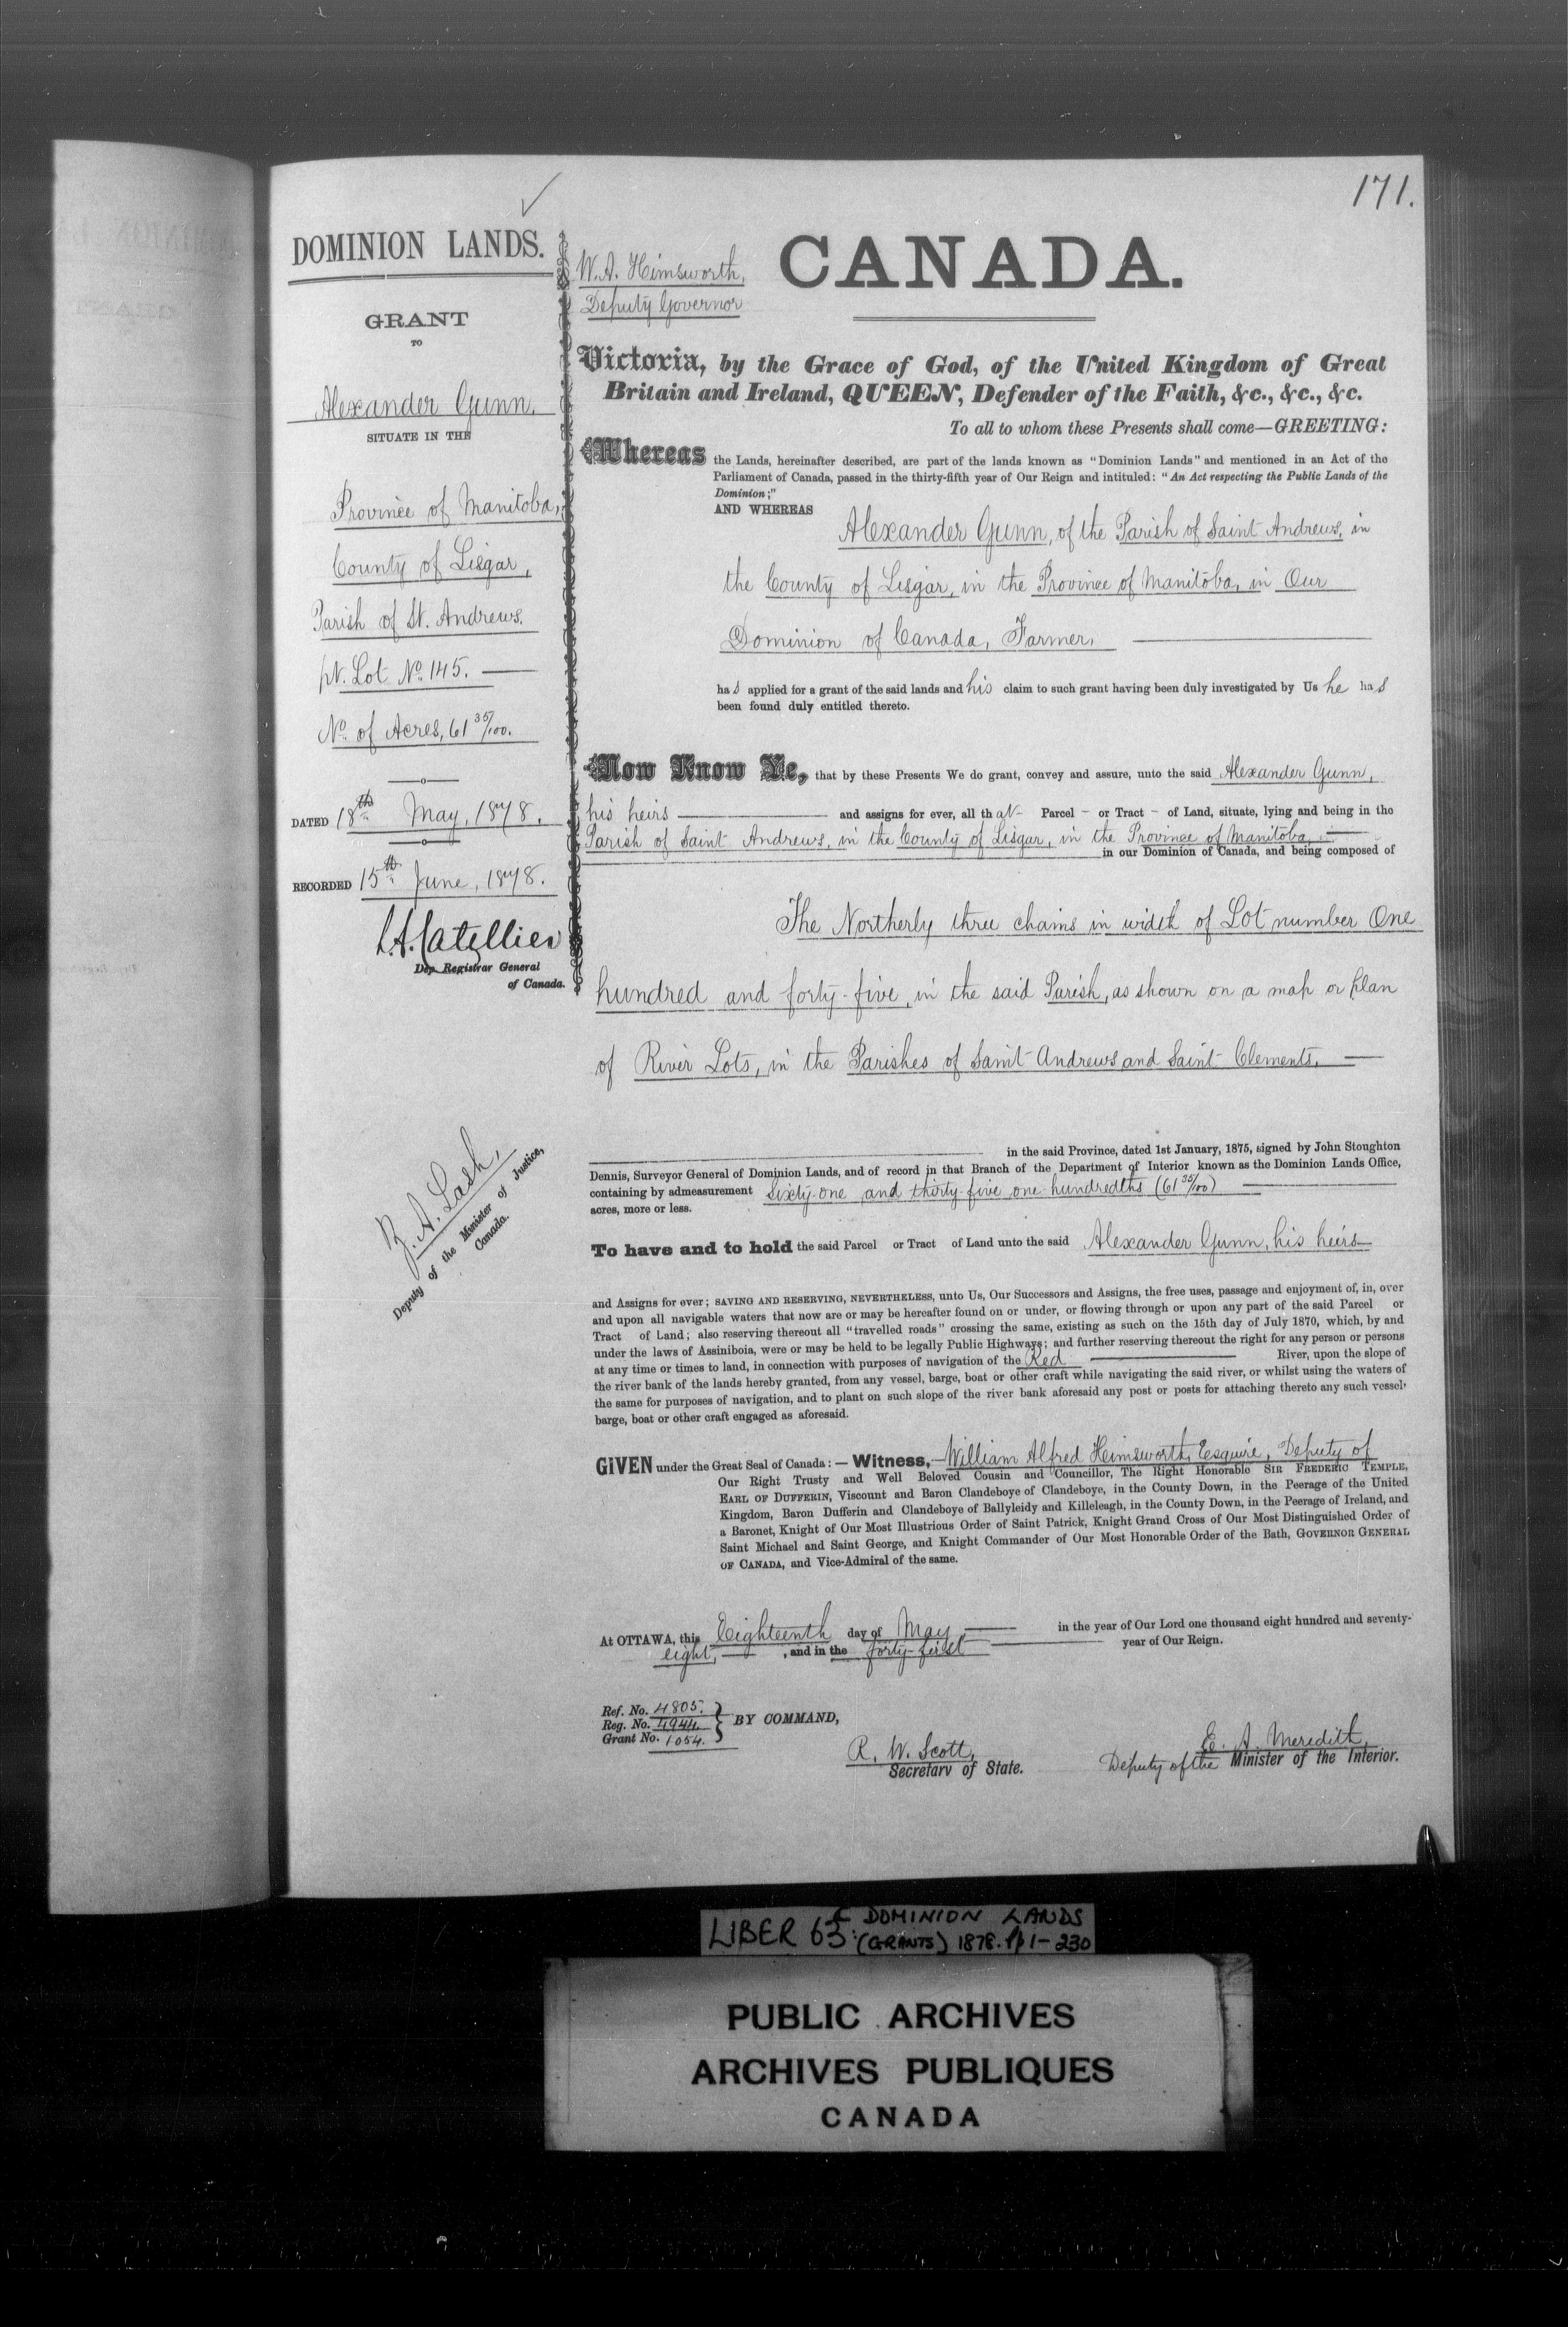 171.
DOMINION LANDS.
GRANT
TO
Alexander Gunn.
SITUATE IN THE
Province of Manitoba,
County of Lisgar,
Parish of St. Andrews.
pt. Lot No. 145.
No. of Acres, 61 35/100.
DATED 18th May, 1878.
RECORDED 15th June, 1878.
L.A. Catellier
Dep. Registrar General
of Canada.
Z. A. Lash,
Deputy of the Minister of Justice,
Canada.
W. A. Himsworth,
Deputy Governor
CANADA.
Victoria, by the Grace of God, of the United Kingdom of Great
Britain and Ireland, QUEEN, Defender of the Faith, &c., &c., &c.
To all to whom these Presents shall come—GREETING:
Whereas the Lands, hereinafter described, are part of the lands known as "Dominion Lands" and mentioned in an Act of the
Parliament of Canada, passed in the thirty-fifth year of Our Reign and intituled: "An Act respecting the Public Lands of the
Dominion;"
AND WHEREAS
Alexander Gunn, of the Parish of Saint Andrews, in
the County of Lisgar, in the Province of Manitoba, in Our
Dominion of Canada, Farmer,
has applied for a grant of the said lands and his claim to such grant having been duly investigated by Us he has
been found duly entitled thereto.
Now Know Ye, that by these Presents We do grant, convey and assure, unto the said Alexander Gunn,
his heirs and assigns for ever, all that Parcel - or Tract - of Land, situate, lying and being in the
Parish of Saint Andrews, in the County of Lisgar, in the Province of Manitoba,
in our Dominion of Canada, and being composed of
The Northerly three chains in width of Lot number One
hundred and forty-five, in the said Parish, as shown on a map or plan
of River Lots, in the Parishes of Saint Andrews and Saint Clements.
in the said Province, dated 1st January, 1875, signed by John Stoughton
Dennis, Surveyor General of Dominion Lands, and of record in that Branch of the Department of Interior known as the Dominion Lands Office,
containing by admeasurement sixty-one and thirty-five one-hundredths (61 35/100)
acres, more or less.
To have and to hold the said Parcel or Tract of Land unto the said Alexander Gunn, his heirs
and Assigns for ever; SAVING AND RESERVING, NEVERTHELESS, unto Us, Our Successors and Assigns, the free uses, passage and enjoyment of, in, over
and upon all navigable waters that now are or may be hereafter found on or under, or flowing through or upon any part of the said Parcel or
Tract of Land; also reserving thereout all "travelled roads" crossing the same, existing as such on the 15th day of July 1870, which, by and
under the laws of Assiniboia, were or may be held to be legally Public Highways; and further reserving thereout the right for any person or persons
at any time or times to land, in connection with purposes of navigation of the Red River, upon the slope of
the river bank of the lands hereby granted, from any vessel, barge, boat or other craft while navigating the said river, or whilst using the waters of
the same for purposes of navigation, and to plant on such slope of the river bank aforesaid any post or posts for attaching thereto any such vessel,
barge, boat or other craft engaged as aforesaid.
GIVEN under the Great Seal of Canada: — Witness, William Alfred Himsworth, Esquire, Deputy of
Our Right Trusty and Well Beloved Cousin and Councillor, The Right Honorable SIR FREDERIC TEMPLE,
EARL OF DUFFERIN, Viscount and Baron Clandeboye of Clandeboye, in the County Down, in the Peerage of the United
Kingdom, Baron Dufferin and Clandeboye of Ballyleidy and Killeleagh, in the County Down, in the Peerage of Ireland, and
a Baronet, Knight of Our Most Illustrious Order of Saint Patrick, Knight Grand Cross of Our Most Distinguished Order of
Saint Michael and Saint George, and Knight Commander of Our Most Honorable Order of the Bath, GOVERNOR GENERAL
OF CANADA, and Vice-Admiral of the same.
At OTTAWA, this Eighteenth day of May in the year of Our Lord one thousand eight hundred and seventy-
eight, , and in the forty-first year of Our Reign.
Ref. No. 4805.
Reg. No. 4944.
Grant No. 1054.
BY COMMAND,
R. W. Scott,
Secretary of State.
E. A. Meredith,
Deputy of the Minister of the Interior.
LIBER 63: DOMINION LANDS
(GRANTS) 1878. Pp 1-230
PUBLIC ARCHIVES
ARCHIVES PUBLIQUES
CANADA